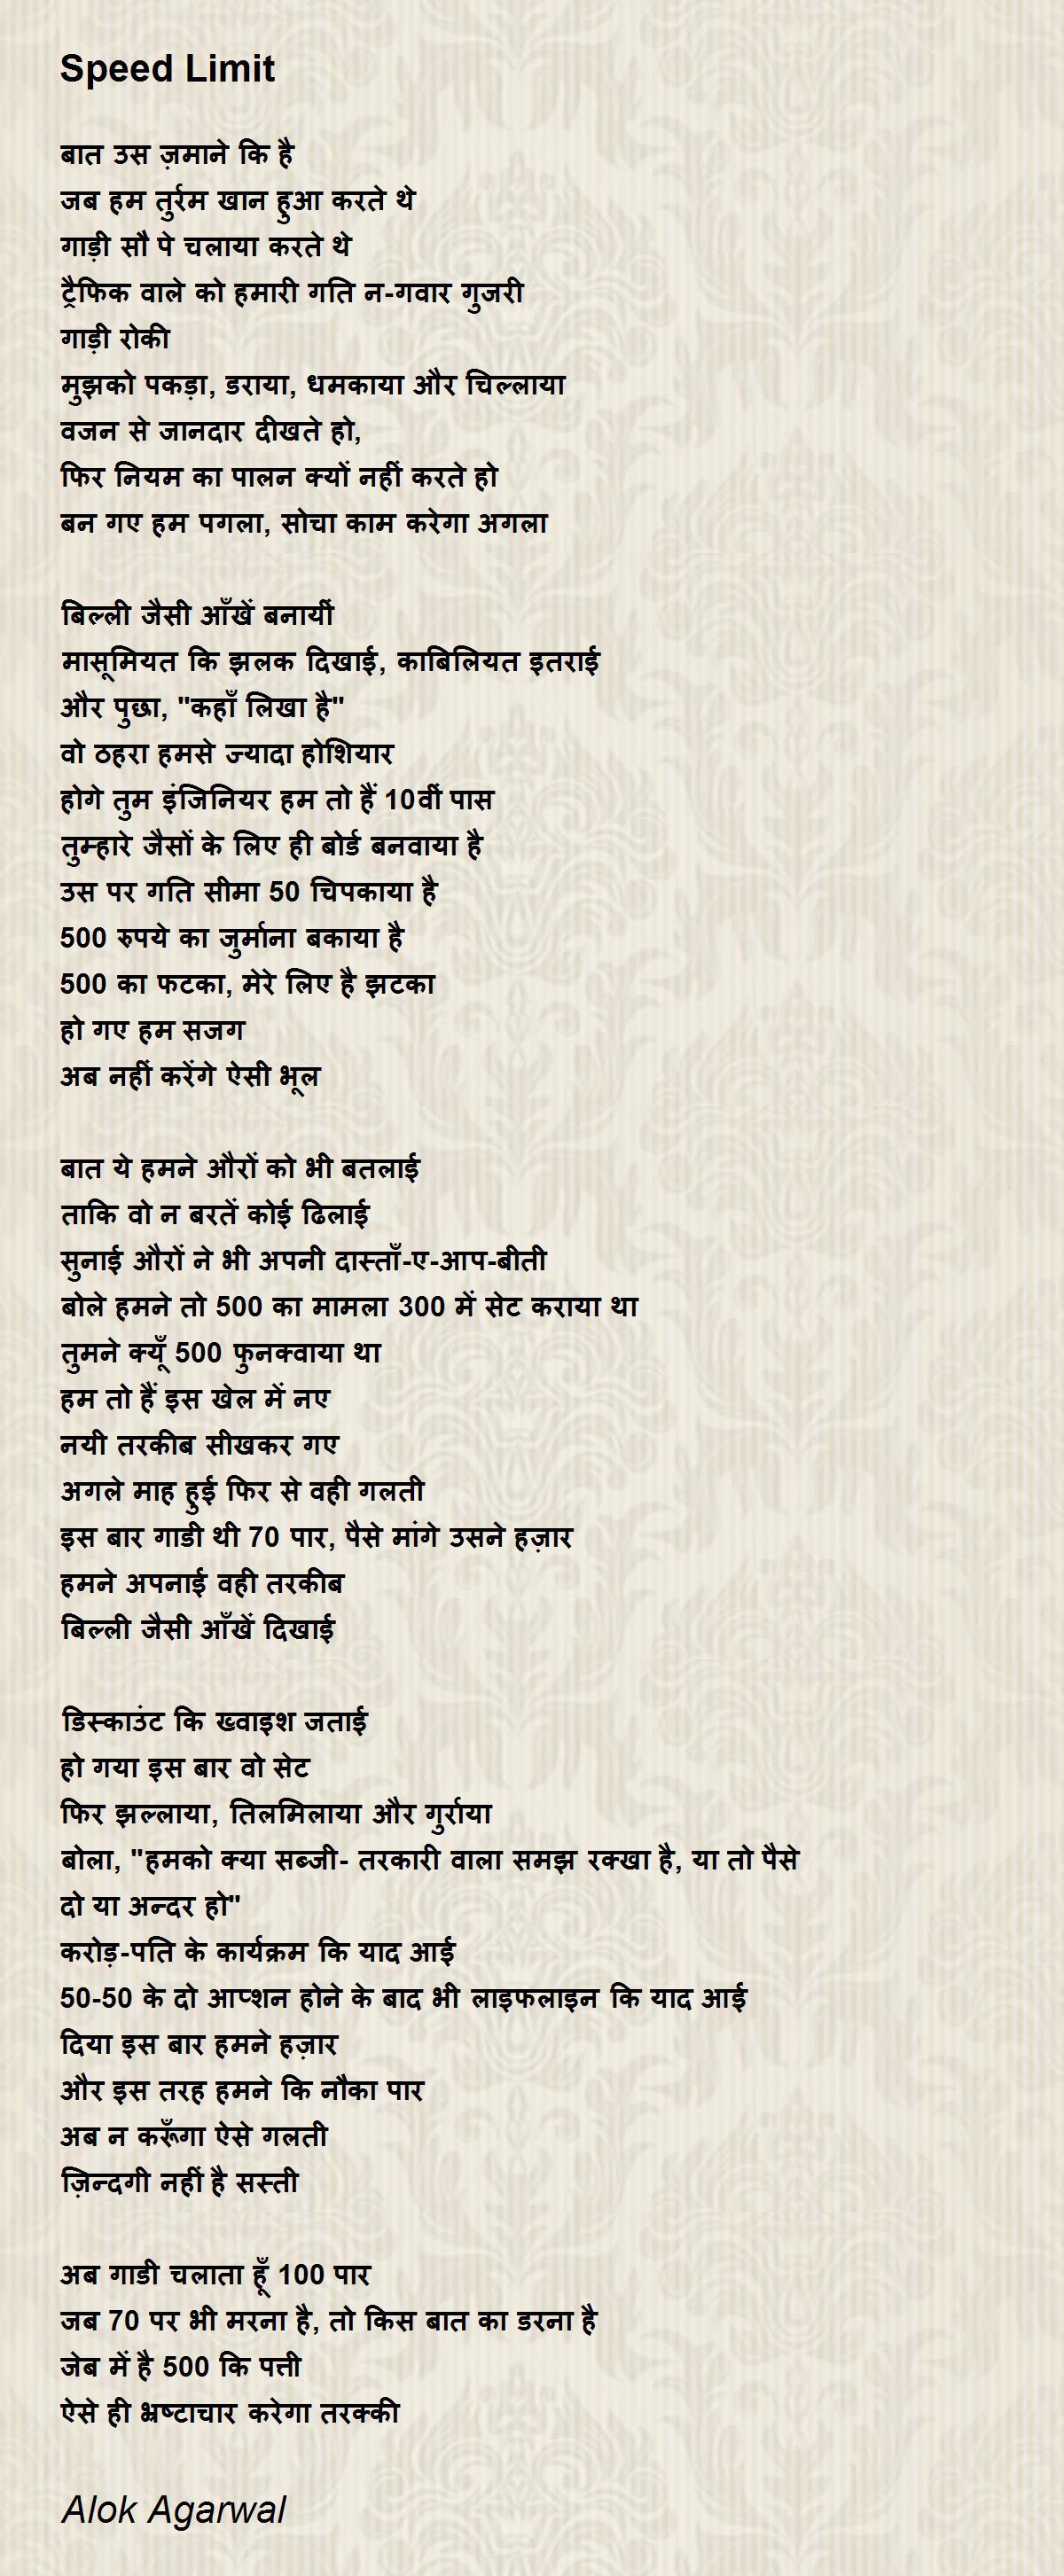 Speed Limit
बात उस ज़माने कि है
जब हम तुर्रम खान हुआ करते थे
गाड़ी सौ पे चलाया करते थे
ट्रैफिक वाले को हमारी गति न-गवार गुजरी
गाड़ी रोकी
मुझको पकड़ा, डराया, धमकाया और चिल्लाया
वजन से जानदार दीखते हो,
फिर नियम का पालन क्यों नहीं करते हो
बन गए हम पगला, सोचा काम करेगा अगला
बिल्ली जैसी आँखें बनायीं
मासूमियत कि झलक दिखाई, काबिलियत इतराई
और पुछा, "कहाँ लिखा है"
वो ठहरा हमसे ज्यादा होशियार
होगे तुम इंजिनियर हम तो हैं 10वीं पास
तुम्हारे जैसों के लिए ही बोर्ड बनवाया है
उस पर गति सीमा 50 चिपकाया है
500 रुपये का जुर्माना बकाया है
500 का फटका, मेरे लिए है झटका
हो गए हम सजग
अब नहीं करेंगे ऐसी भूल
बात ये हमने औरों को भी बतलाई
ताकि वो न बरतें कोई ढिलाई
सुनाई औरों ने भी अपनी दास्ताँ-ए-आप-बीती
बोले हमने तो 500 का मामला 300 में सेट कराया था
तुमने क्यूँ 500 फुनक्वाया था
हम तो हैं इस खेल में नए
नयी तरकीब सीखकर गए
अगले माह हुई फिर से वही गलती
इस बार गाडी थी 70 पार, पैसे मांगे उसने हज़ार
हमने अपनाई वही तरकीब
बिल्ली जैसी आँखें दिखाई
डिस्काउंट कि ख्वाइश जताई
हो गया इस बार वो सेट
फिर झल्लाया, तिलमिलाया और गुर्राया
बोला, "हमको क्या सब्जी- तरकारी वाला समझ रक्खा है, या तो पैसे
दो या अन्दर हो"
करोड़-पति के कार्यक्रम कि याद आई
50-50 के दो आप्शन होने के बाद भी लाइफलाइन कि याद आई
दिया इस बार हमने हज़ार
और इस तरह हमने कि नौका पार
अब न करूँगा ऐसे गलती
ज़िन्दगी नहीं है सस्ती
अब गाडी चलाता हूँ 100 पार
जब 70 पर भी मरना है, तो किस बात का डरना है
जेब में है 500 कि पत्ती
ऐसे ही भ्रष्टाचार करेगा तरक्की
Alok Agarwal